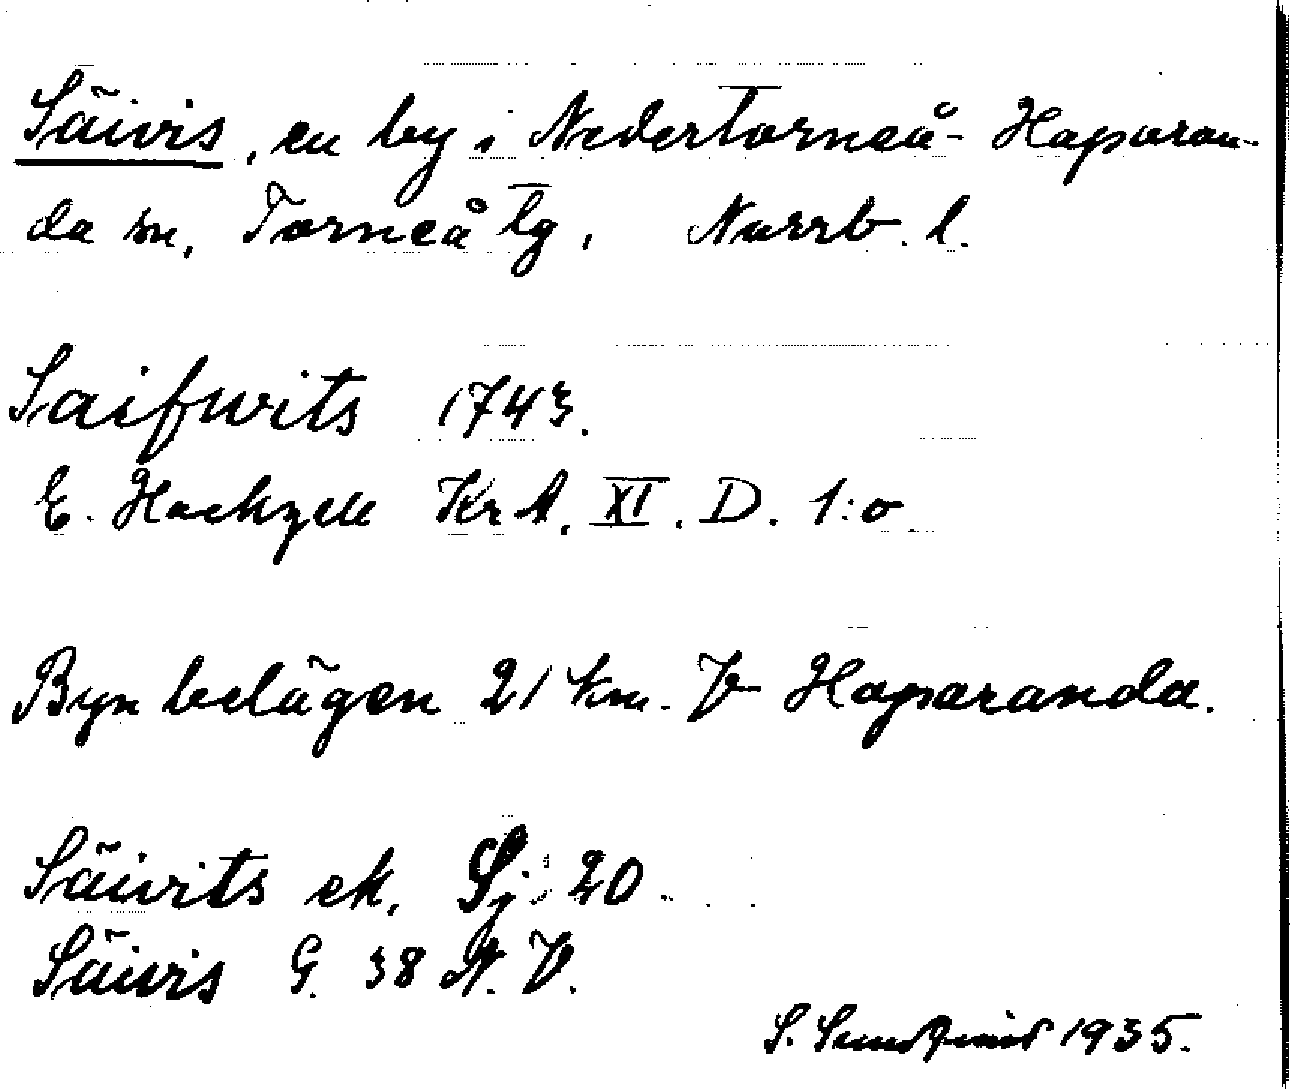 Säivis, en by i Nedertorneå- Haparan-
da sn, Torneå tg, Norrb. l.
Saifwits 1743.
E. Hackzell KrA. XI. D. 1:o
Byn belägen 21 km. V Haparanda.
Säivits ek. Sj: 20
Säivis G. 38 N. V.
S. 1935.